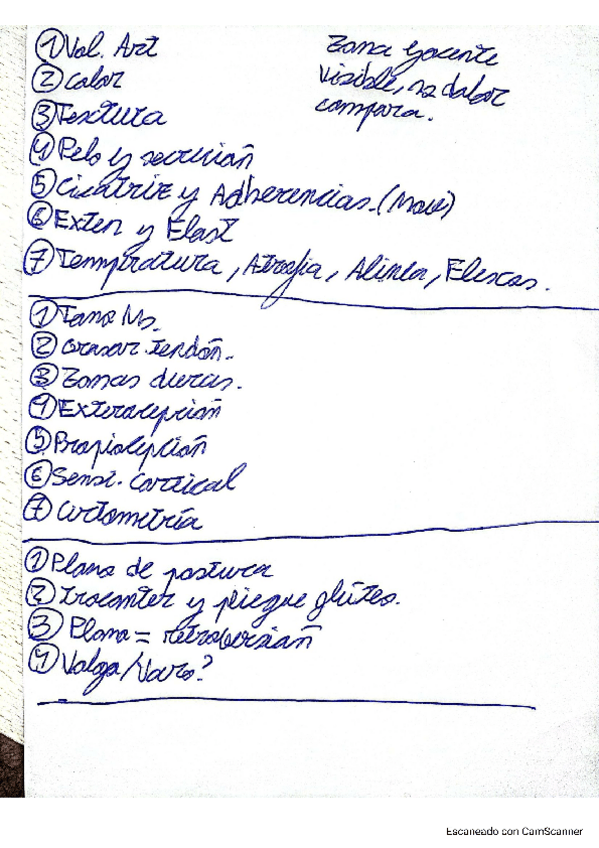 ① Vol. Art
② Color
③ Textura
④ Pelo y secreción
⑤ Cicatriz y Adherencias. (Move)
⑥ Exten y Elast
⑦ Tempratura, Atrofia, Alinea, Flexas.
Zona yacente
visible, no dolor
compara.
① Tono Ms.
② Grosor tendón.
③ Zonas duras.
④ Exterocepción
⑤ Propiocepción
⑥ Sensi. Cortical
⑦ Cirtometría
① Plano de postura
② Trocanter y pliegue glúteo.
③ Plano = retroversión
④ Valgo/Varo?
Escaneado con CamScanner